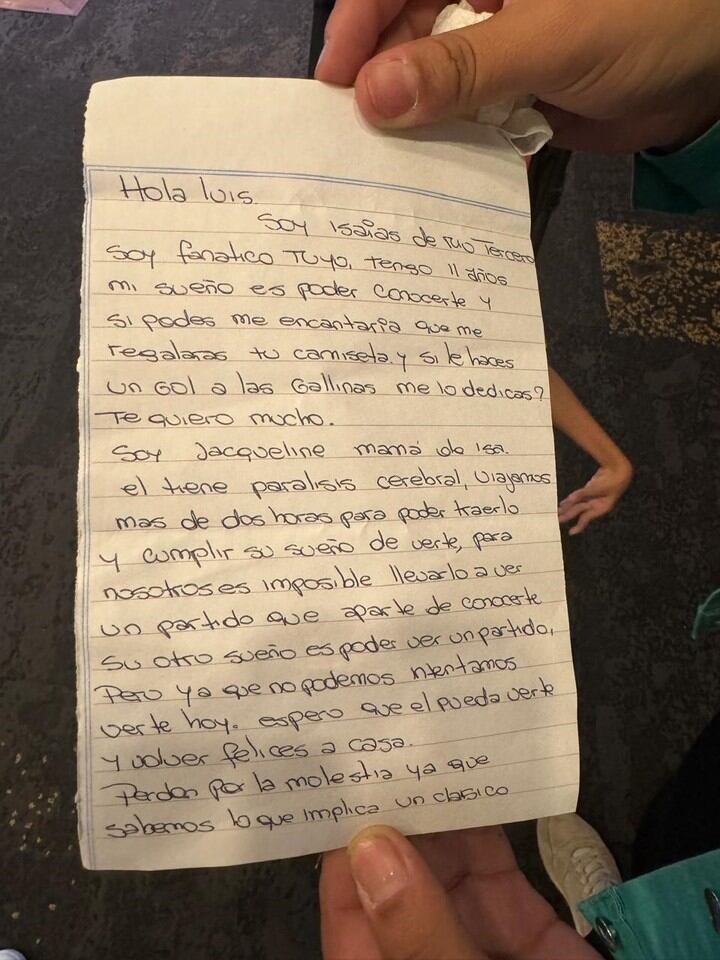 Hola luis.
Soy isaias de rio Tercero
Soy fanatico TUYO, tengo 11 años
mi sueño es poder conocerte y
si podes me encantaria que me
regalaras tu camiseta y si le haces
un Gol a las Gallinas me lo dedicas?
Te quiero mucho.
Soy Jacqueline mamá de isa.
el tiene paralisis cerebral, viajamos
mas de dos horas para poder traerlo
y cumplir su sueño de verte, para
nosotros es imposible llevarlo a ver
un partido que aparte de conocerte
su otro sueño es poder ver un partido,
Pero ya que no podemos intentamos
verte hoy. espero que el pueda verte
y volver felices a casa.
Perdon por la molestia ya que
sabemos lo que implica un clasico